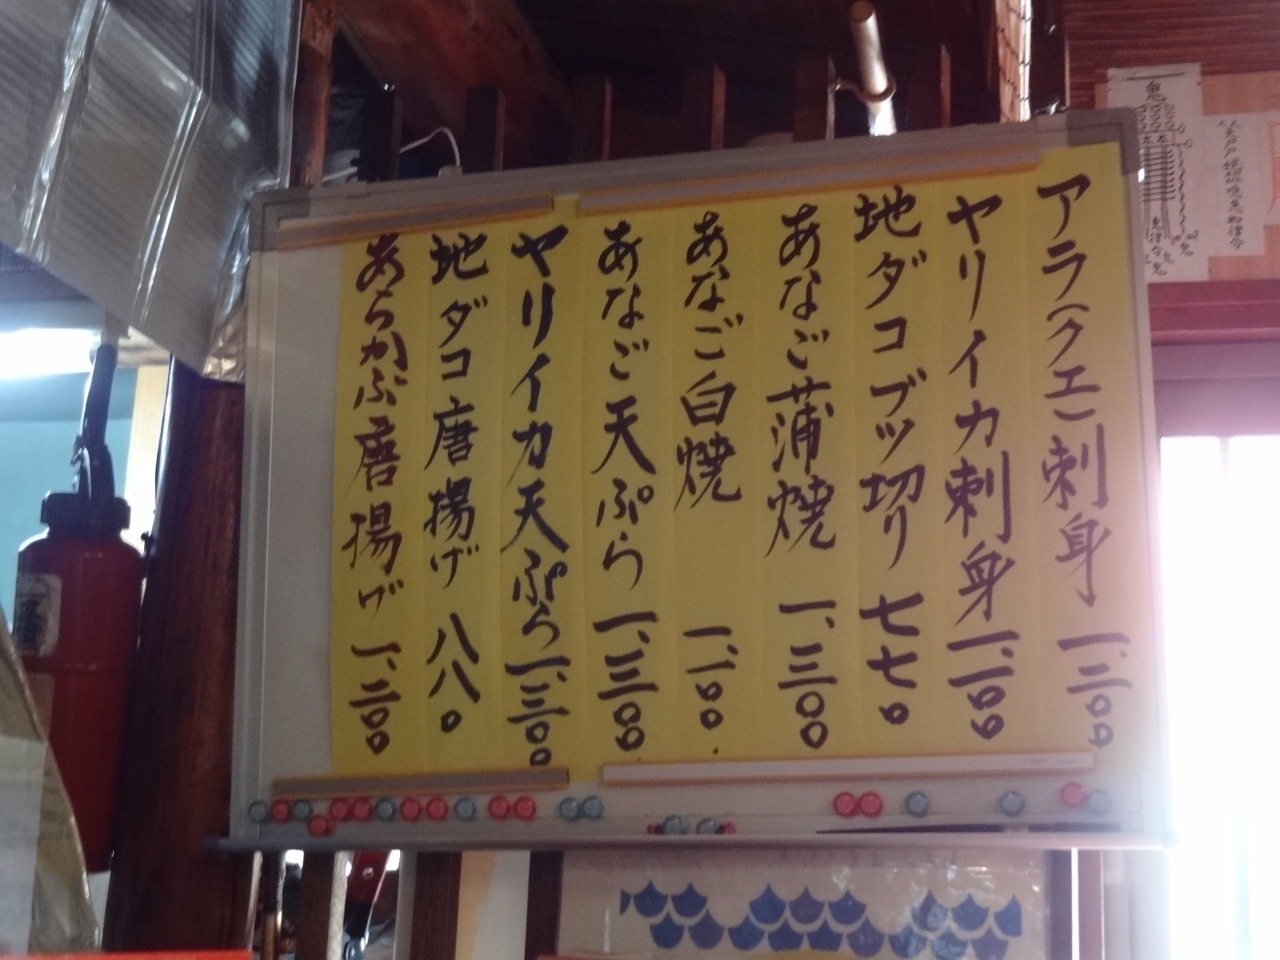 アラ(クエ)刺身 一、二〇〇
ヤリイカ刺身 一、一〇〇
地ダコブツ切り 七七〇
あなご蒲焼 一、三〇〇
あなご白焼 一、一〇〇
あなご天ぷら 一、三〇〇
ヤリイカ天ぷら 一、三〇〇
地ダコ唐揚げ 八八〇
あらかぶ唐揚げ 一、二〇〇